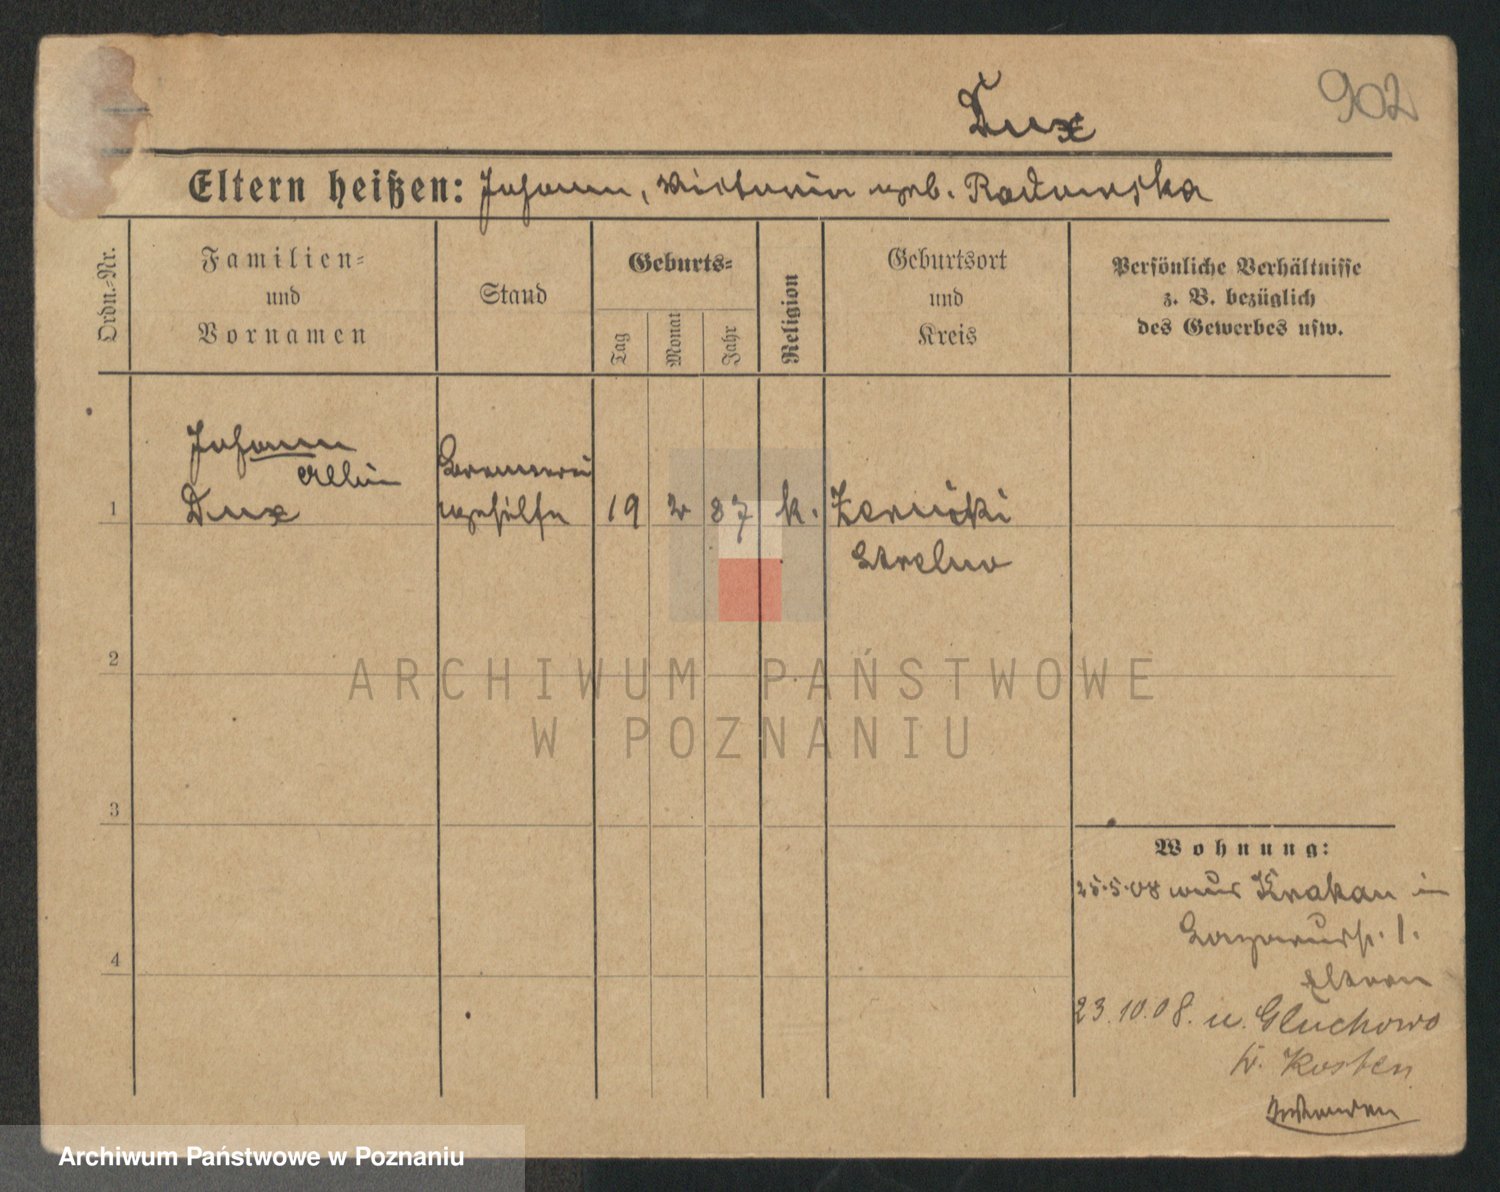 902
Dux
Eltern heißen: Johann, Victoria geb. Radomska
Ordn.-Nr.
Familien-
und
Vornamen
Stand
Geburts-
Tag
Monat
Jahr
Religion
Geburtsort
und
Kreis
Persönliche Verhältnisse
z. B. bezüglich
des Gewerbes usw.
Johann
Albin
Dux
Brennerei
gehilfe
1
19
2
87
k.
Strelno
2
3
4
Wohnung:
25.5.08 aus Krakau in
1.
Eltern
23.10.08. n. Gluchowo
Kr. Kosten
ARCHIWUM PAŃSTWOWE
W POZNANIU
Archiwum Państwowe w Poznaniu